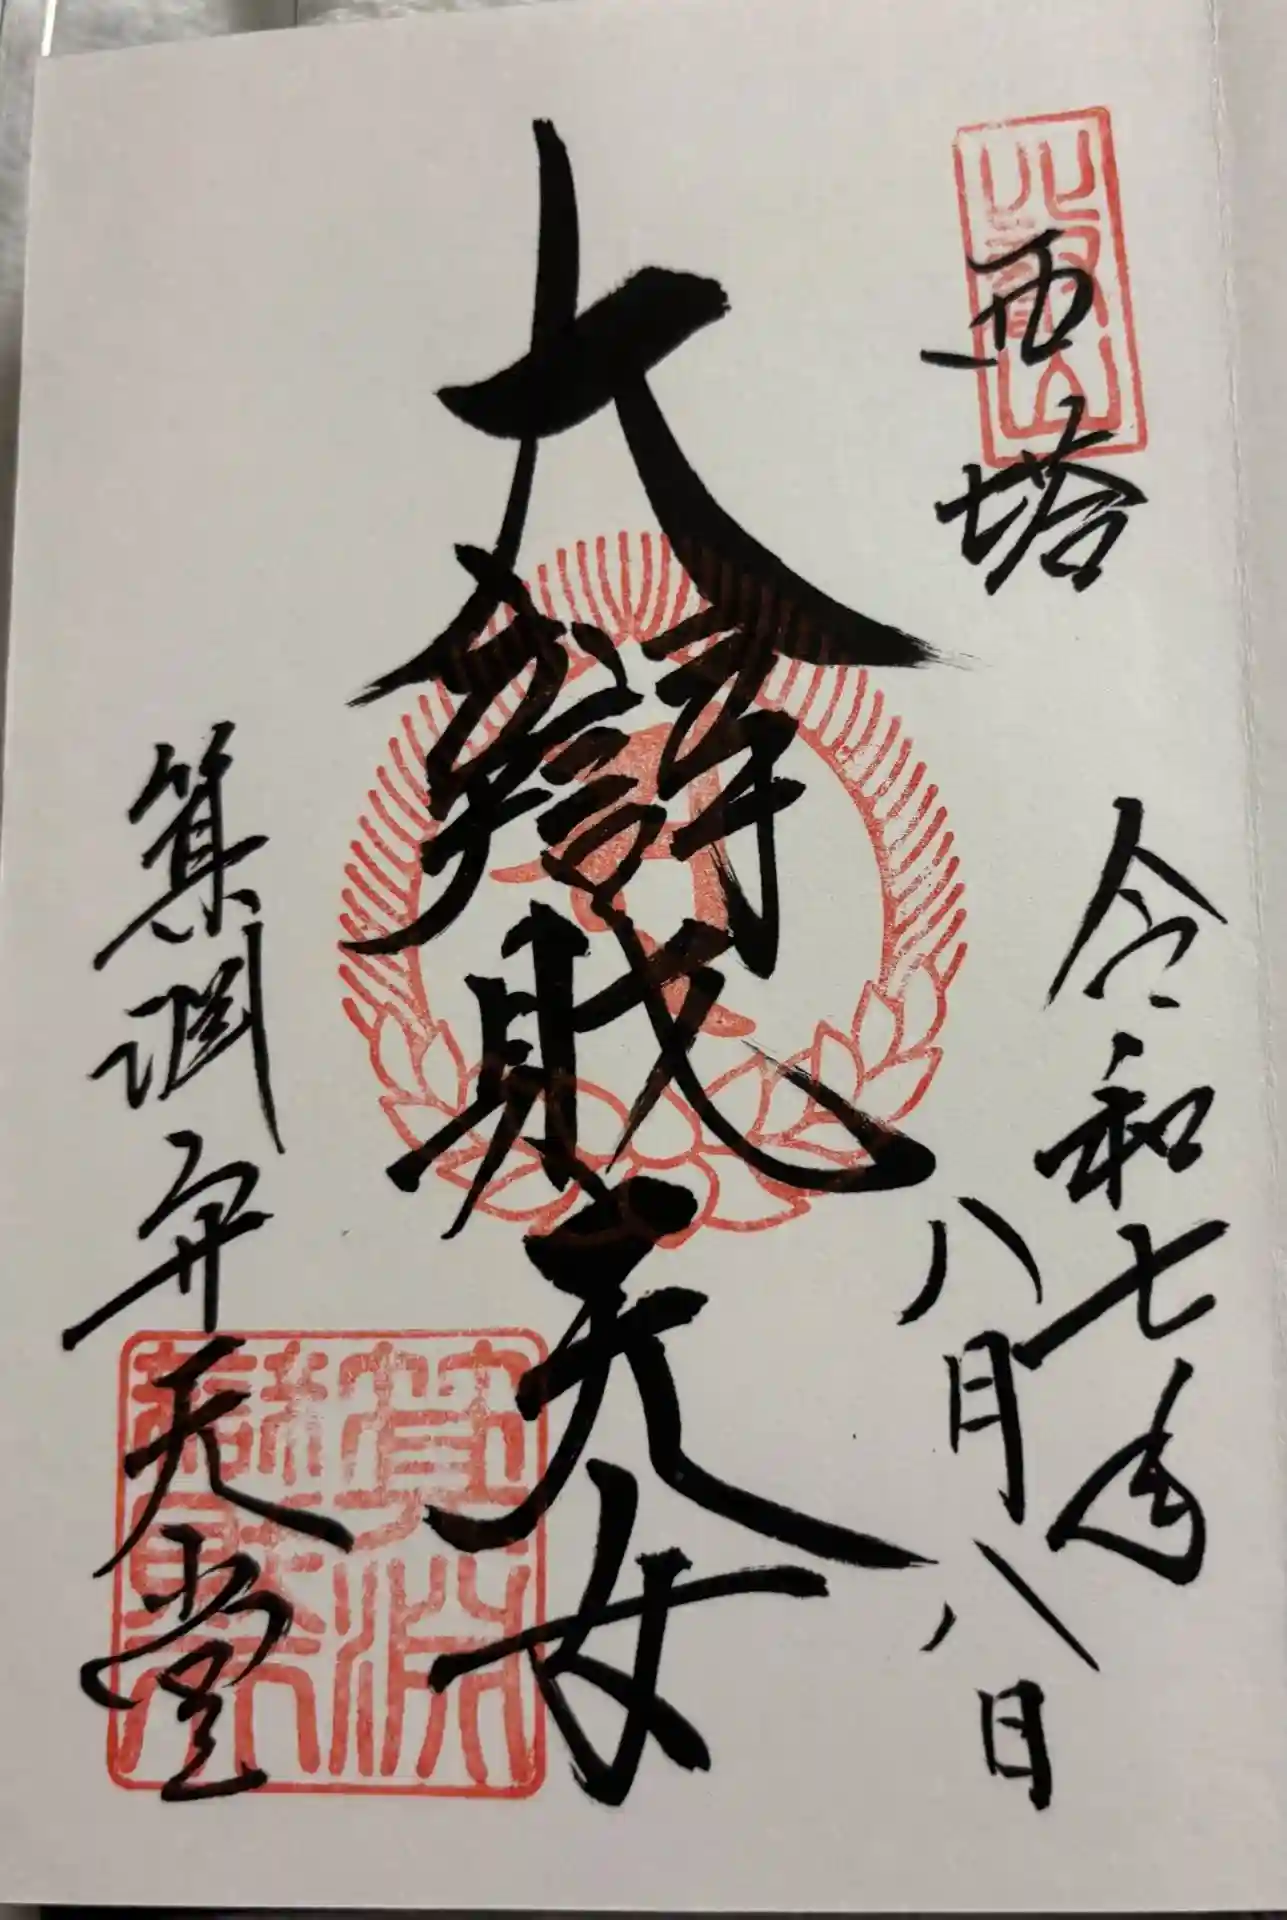 比叡山
西塔
令和七年
八月八日
大辯財天女
箕淵弁天堂